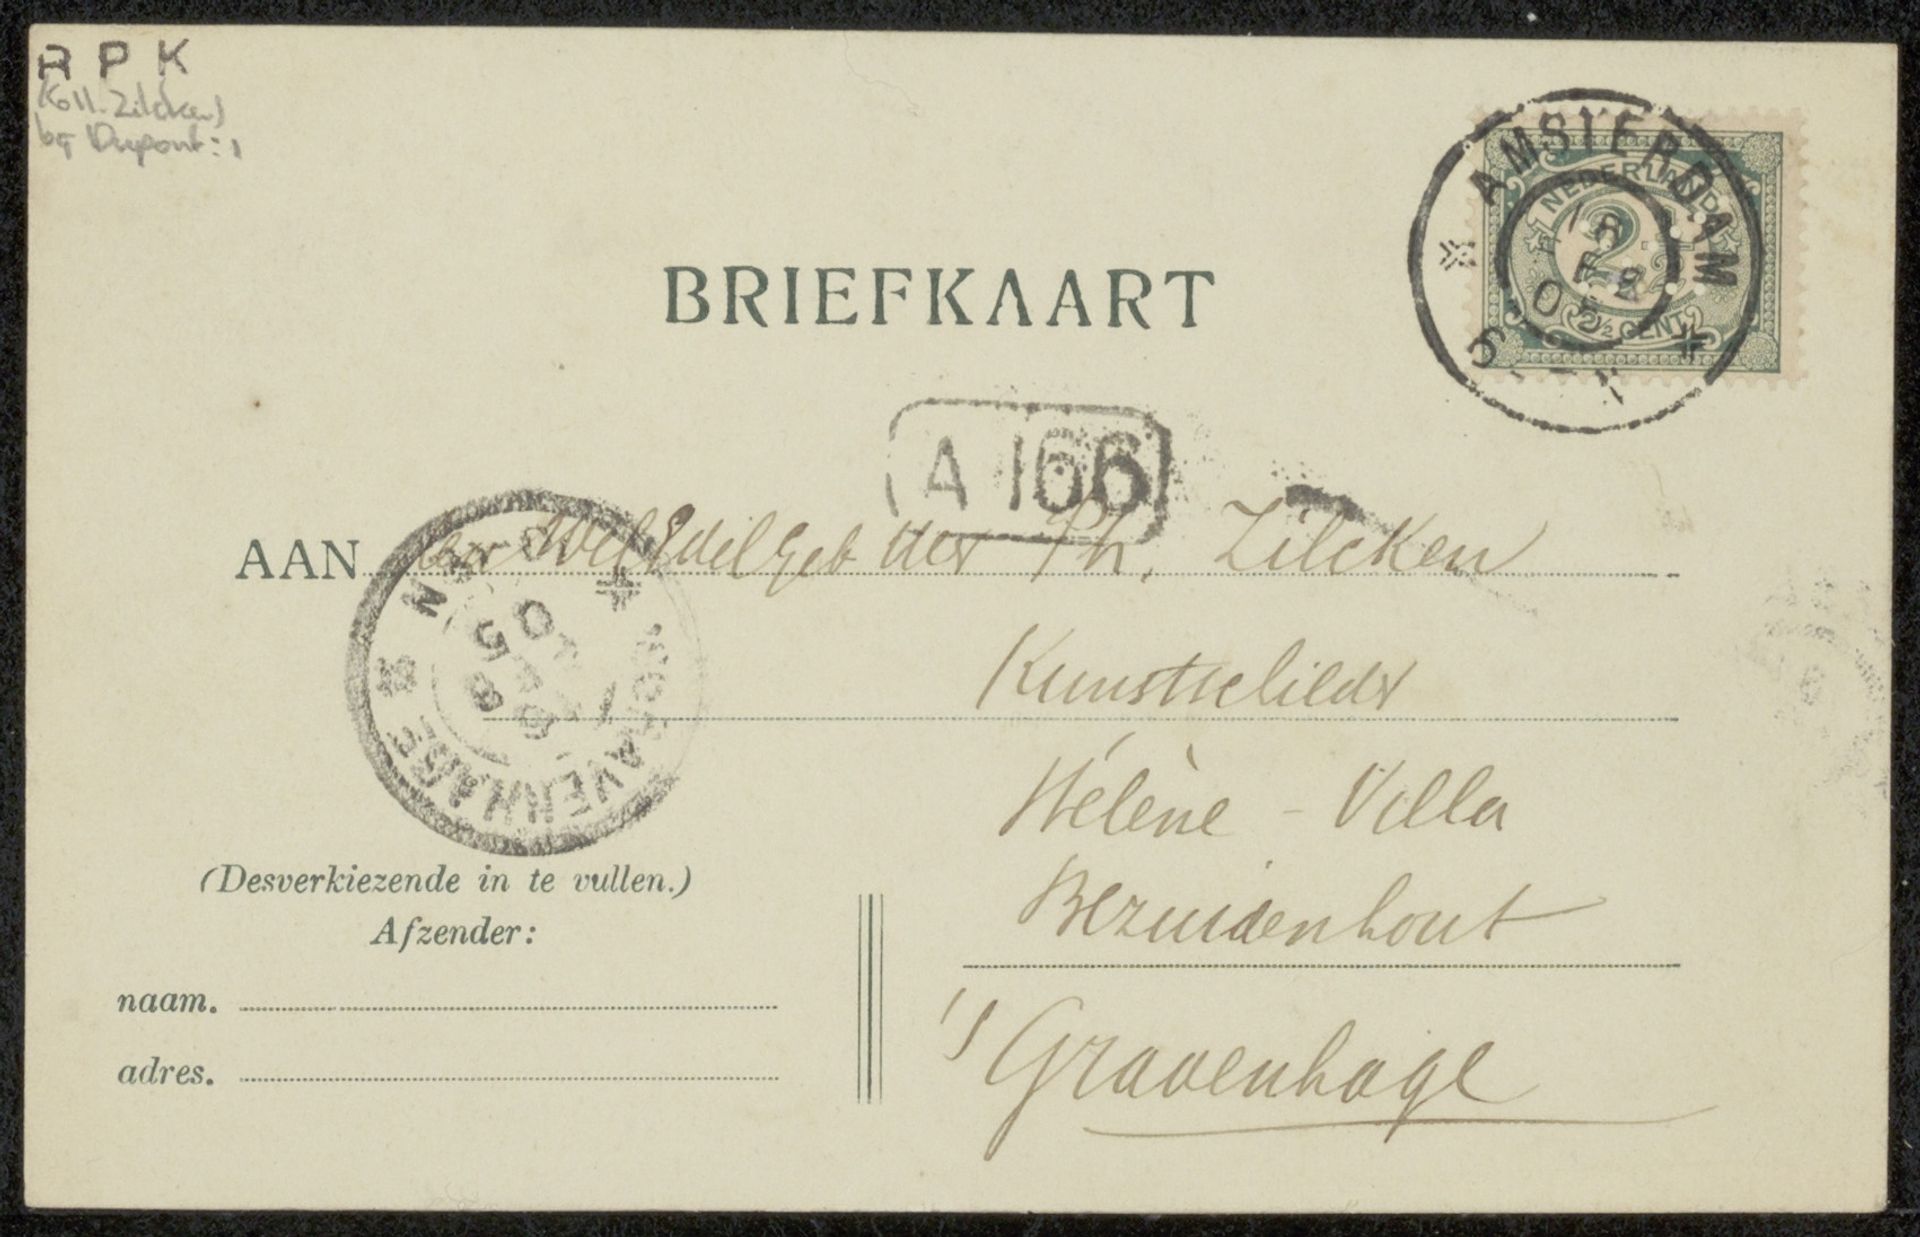 R P K
Koll. Zilcken
bij Dupont: 1
AMSTERDAM
NEDERLAND
2½
2½ CENT
BRIEFKAART
A 166
AAN den WelEdelGeb Heer Ph. Zilcken
Kunstschilder
Hélène - Villa
Bezuidenhout
's Gravenhage
'S GRAVENHAGE
05
(Desverkiezende in te vullen.)
Afzender:
naam.
adres.